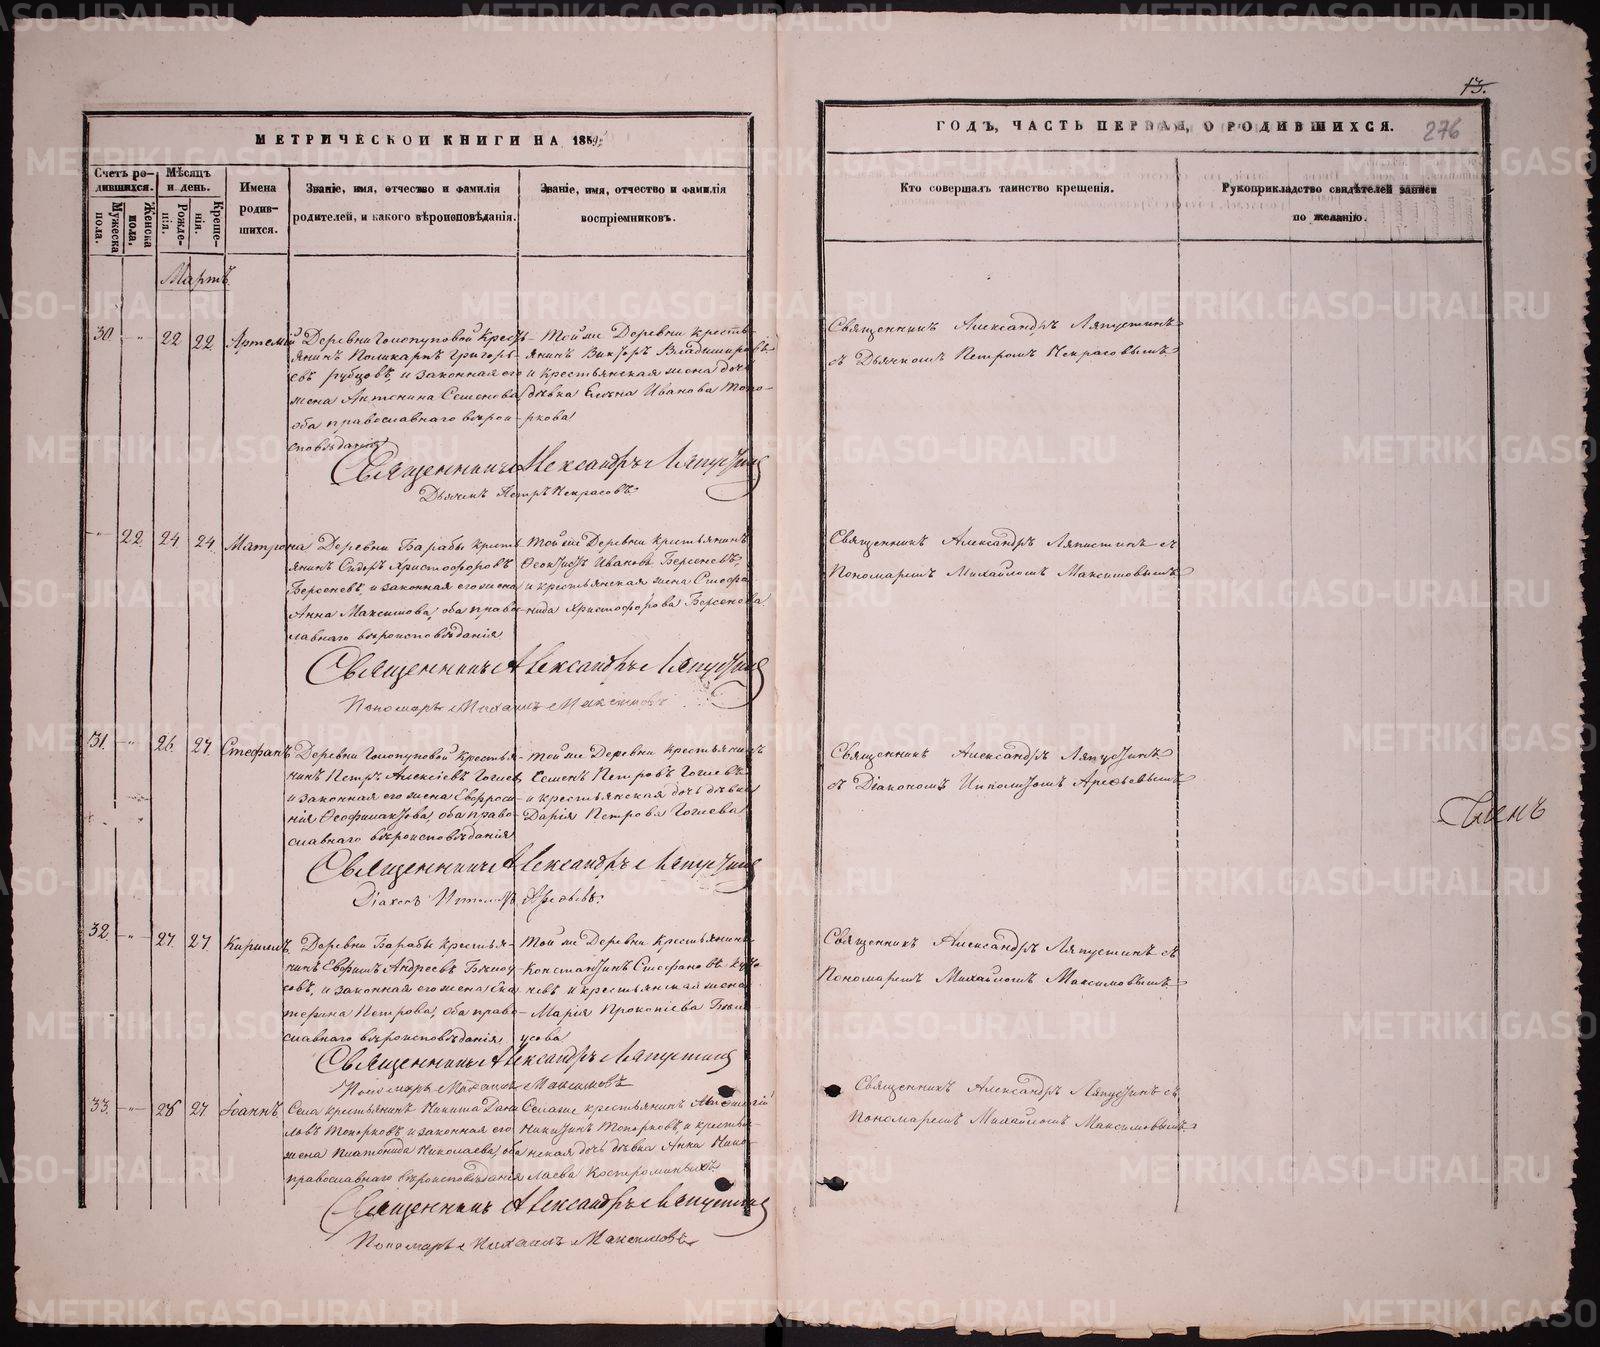 13.
276
МЕТРИЧЕСКОЙ КНИГИ НА 1859
ГОДЪ, ЧАСТЬ ПЕРВАЯ, О РОДИВШИХСЯ.
Счетъ родившихся.
Мужеска пола.
Женска пола.
Мѣсяцъ и день.
Рожденія.
Крещенія.
Имена родившихся.
Званіе, имя, отчество и фамилія родителей, и какого вѣроисповѣданія.
Званіе, имя, отчество и фамилія воспріемниковъ.
Кто совершалъ таинство крещенія.
Рукоприкладство свидѣтелей записи по желанію.
Мартъ
30. 22 22 Артемій
Деревни Голопуповой кресть-
янинъ Поликарпъ Григорь-
евъ Рубцовъ, и законная его
жена Антонина Семенова
оба православнаго вѣрои-
сповѣданія
Тойже Деревни кресть-
янинъ Викторъ Владиміровъ
и крестьянская
дѣвка Елена Иванова Топо-
ркова
Священникъ Александръ Ляпустинъ
съ Дьячкомъ Петромъ Некрасовымъ
Священникъ Александръ Ляпустинъ
Дьячекъ Петръ Некрасовъ
22 24 24 Матрона
Деревни Барабы кресть-
янинъ Сидоръ Христофоровъ
Берсеневъ, и законная его жена
Анна Максимова, оба право-
славнаго вѣроисповѣданія
Тойже Деревни крестьянинъ
Феоктистъ Ивановъ Берсеневъ,
и крестьянская жена Стефа-
нида Христофорова Берсенева
Священникъ Александръ Ляпустинъ съ
Пономаремъ Михайломъ Максимовымъ
Священникъ Александръ Ляпустинъ
Пономарь Михаилъ Максимовъ
31. 26 27 Стефанъ
Деревни Голопуповой крестья-
нинъ Петръ Алексіевъ Гогiевъ
и законная его жена Евфроси-
нія Феофилактова, оба право-
славнаго вѣроисповѣданія
Тойже Деревни крестьянинъ
Семенъ Петровъ
и крестьянская дочь дѣвка
Дарія Петрова
Священникъ Александръ Ляпустинъ
съ Діакономъ Ипполитомъ Арефьевымъ
Священникъ Александръ Ляпустинъ
Діаконъ Ипполитъ Арефьевъ
Членъ
32. 27 27 Кириллъ
Деревни Барабы крестья-
нинъ Евфимъ Андреевъ Бѣлоу-
совъ, и законная его жена Ека-
терина Петрова, оба право-
славнаго вѣроисповѣданія
Тойже Деревни крестьянинъ
Константинъ Стефановъ
и крестьянская жена
Марія Прокопіева Бѣло-
усова
Священникъ Александръ Ляпустинъ съ
Пономаремъ Михайломъ Максимовымъ
Священникъ Александръ Ляпустинъ
Пономарь Михаилъ Максимовъ
33. 26 27 Іоаннъ
Села крестьянинъ Никита Дани-
ловъ Топорковъ, и законная его
жена Платонида Николаева, оба
православнаго вѣроисповѣданія
Селаже крестьянинъ
Никитинъ Топорковъ, и крестья-
нская дочь дѣвка Анна Нико-
лаева Костроминыхъ
Священникъ Александръ Ляпустинъ съ
Пономаремъ Михайломъ Максимовымъ
Священникъ Александръ Ляпустинъ
Пономарь Михаилъ Максимовъ
METRIKI.GASO-URAL.RU